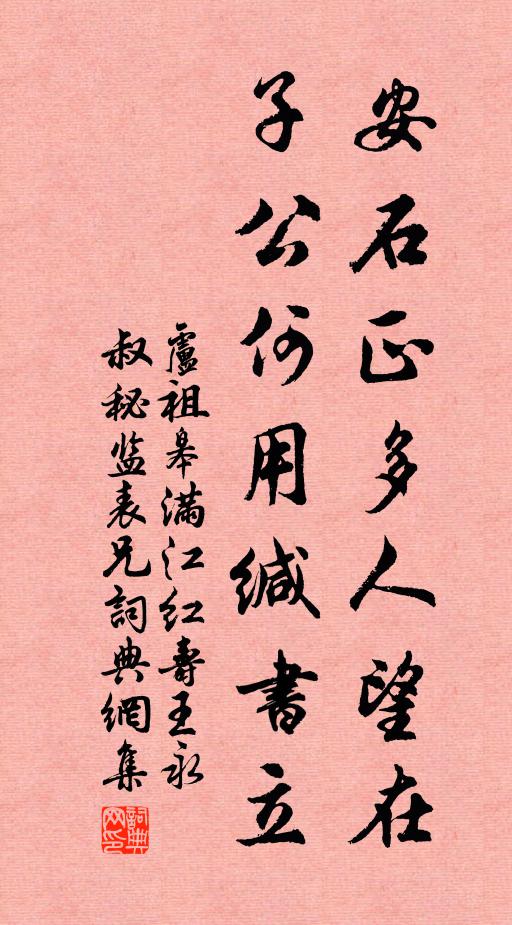 安石正多人望在
子公何用缄書立
盧祖皋满江红壽王永
叔秘监表兄詞典網集
詞典网印